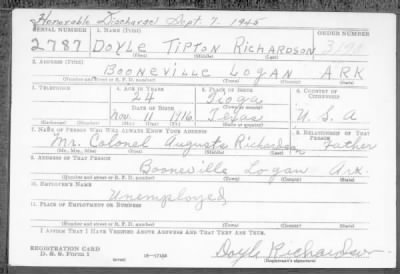 Honorable Discharge Sept. 7. 1945
SERIAL NUMBER 1. NAME (Print) ORDER NUMBER
2787 DOYLE TIPTON RICHARDSON
(First) (Middle) (Last)
2. ADDRESS (Print)
BOONEVILLE LOGAN ARK
(Number and street or R. F. D. number) (Town) (County) (State)
3. TELEPHONE 4. AGE IN YEARS 5. PLACE OF BIRTH 6. COUNTRY OF CITIZENSHIP
24 Tioga
DATE OF BIRTH
Nov. 11 1916 Texas U.S.A
(Exchange) (Number) (Mo.) (Day) (Yr.) (State or country)
7. NAME OF PERSON WHO WILL ALWAYS KNOW YOUR ADDRESS 8. RELATIONSHIP OF THAT PERSON
Mr. Colonel Augusta Richardson Father
(Mr., Mrs., Miss) (First) (Middle) (Last)
9. ADDRESS OF THAT PERSON
Booneville Logan Ark.
(Number and street or R. F. D. number) (Town) (County) (State)
10. EMPLOYER'S NAME
Unemployed
11. PLACE OF EMPLOYMENT OR BUSINESS
(Number and street or R. F. D. number) (Town) (County) (State)
I AFFIRM THAT I HAVE VERIFIED ABOVE ANSWERS AND THAT THEY ARE TRUE.
REGISTRATION CARD
D. S. S. Form 1 (over) 16—17105 Doyle Richardson
(Registrant's signature)